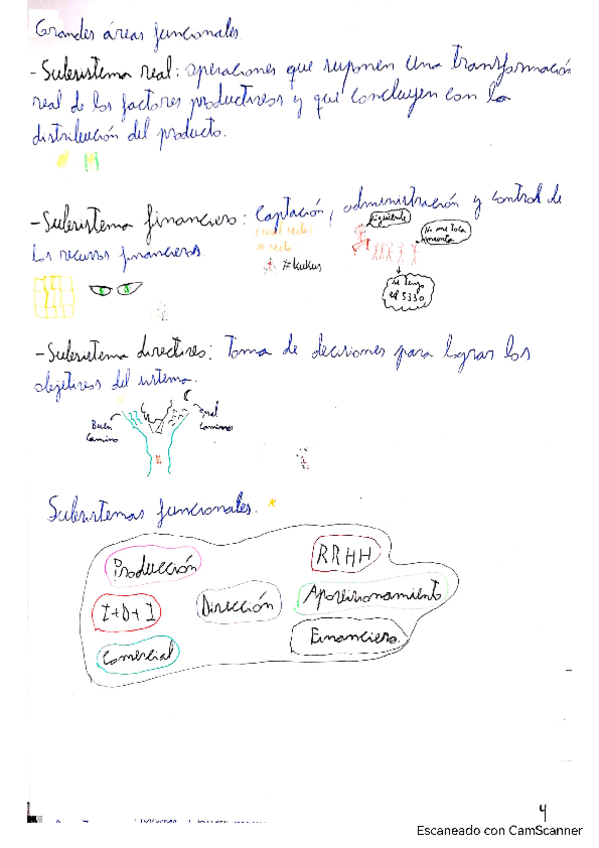 Grandes áreas funcionales
- Subsistema real: operaciones que suponen una transformación
real de los factores productivos y que concluyen con la
distribución del producto.
- Subsistema financiero: Captación, administración y control de
los recursos financieros.
Siguiente
No me toca
#kukus
se tengo
- Subsistema directivo: Toma de decisiones para lograr los
objetivos del sistema.
Buen
Camino
mal
Camino
Subsistemas funcionales. *
Producción
RRHH
I+D+I
Dirección
Aprovisionamiento
Comercial
Financiero
4
Escaneado con CamScanner